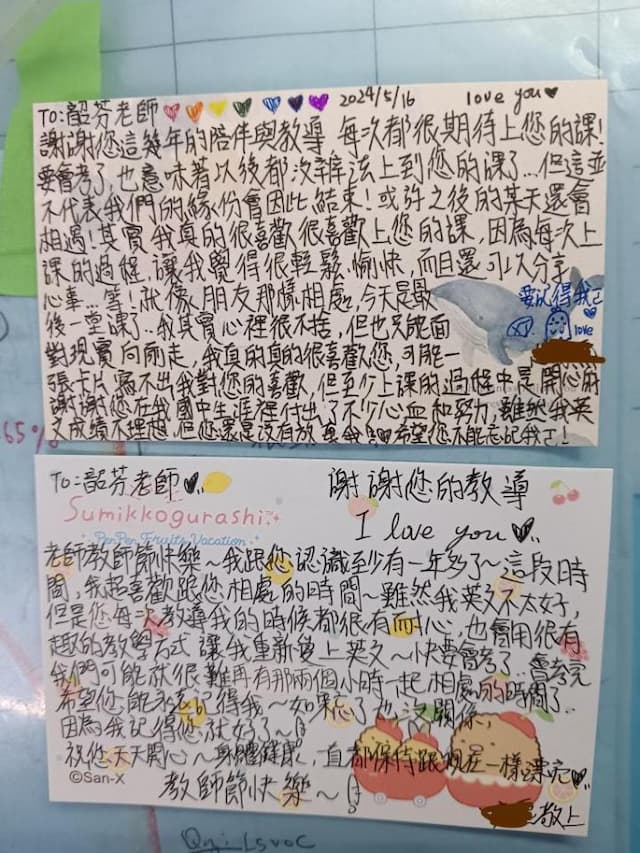 To:韶芬老師 2024/5/16 love you
謝謝您這幾年的陪伴與教導 每次都很期待上您的課!
要會考了,也意味著以後都沒辦法上到您的課了...但這並
不代表我們的緣份會因此結束!或許之後的某天還會
相遇!其實我真的很喜歡很喜歡上您的課,因為每次上
課的過程,讓我覺得很輕鬆、愉快,而且還可以分享
心事...等!就像朋友那樣相處,今天是最
後一堂課了...我其實心裡很不捨,但也只能面
對現實向前走,我真的真的很喜歡您,可能一
張卡片寫不出我對您的喜歡,但至少上課的過程中是開心的
謝謝您在我國中生涯裡付出了不少心血和努力,雖然我英
文成績不理想,但您還是沒有放棄我!希望您不能忘記我!
要記得我
love
To:韶芬老師
謝謝您的教導
Sumikkogurashi
PenPen Fruits Vacation
I love you
老師教師節快樂~我跟您認識至少有一年多了~這段時
間,我超喜歡跟您相處的時間~雖然我英文不太好,
但是您每次教導我的時候都很有耐心,也會用很有
趣的教學方式 讓我重新愛上英文~快要會考了..會考完
我們可能就很難再有那兩個小時一起相處的時間了..
希望您能永遠記得我~如果忘了也沒關係,
因為我記得您就好了~
祝您天天開心~身體健康,一直都保持跟現在一樣漂亮
©San-X
教師節快樂~
敬上
65%